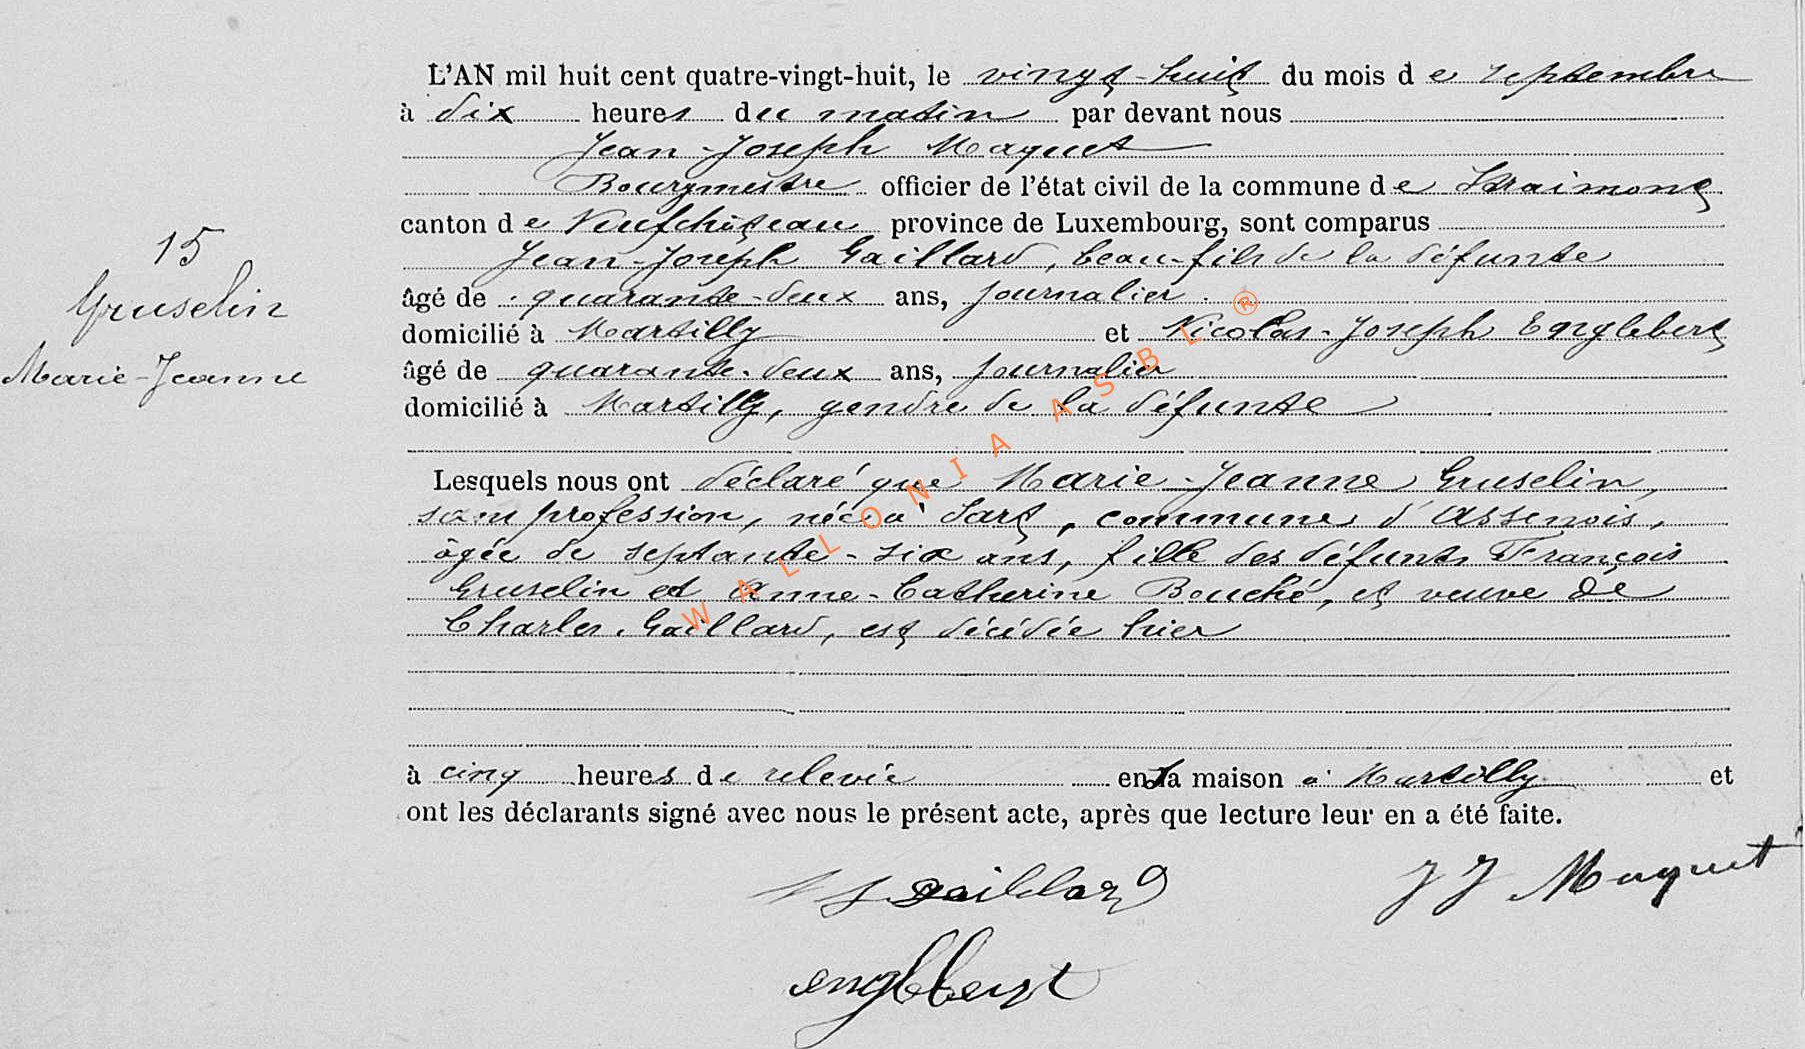 L'AN mil huit cent quatre-vingt-huit, le vingt-huit du mois de septembre
à dix heures du matin par devant nous
Jean-Joseph Maquet
Bourgmestre officier de l'état civil de la commune de Straimont
canton de Neufchâteau province de Luxembourg, sont comparus
Jean-Joseph Gaillard, beau-fils de la défunte
âgé de quarante-deux ans, journalier.
domicilié à Martilly et Nicolas-Joseph Englebert
âgé de quarante-deux ans, journalier
domicilié à Martilly, gendre de la défunte
15
Gruselin
Marie-Jeanne
Lesquels nous ont déclaré que Marie-Jeanne Gruselin,
sans profession, née à Sart, commune d'Assenois,
âgée de septante-six ans, fille des défunts François
Gruselin et Anne-Catherine Bouché, et veuve de
Charles Gaillard, est décédée hier
à cinq heures de relevée en sa maison à Martilly et
ont les déclarants signé avec nous le présent acte, après que lecture leur en a été faite.
J gaillard
J J Maquet
englbert
WALLONIA ASBL ®